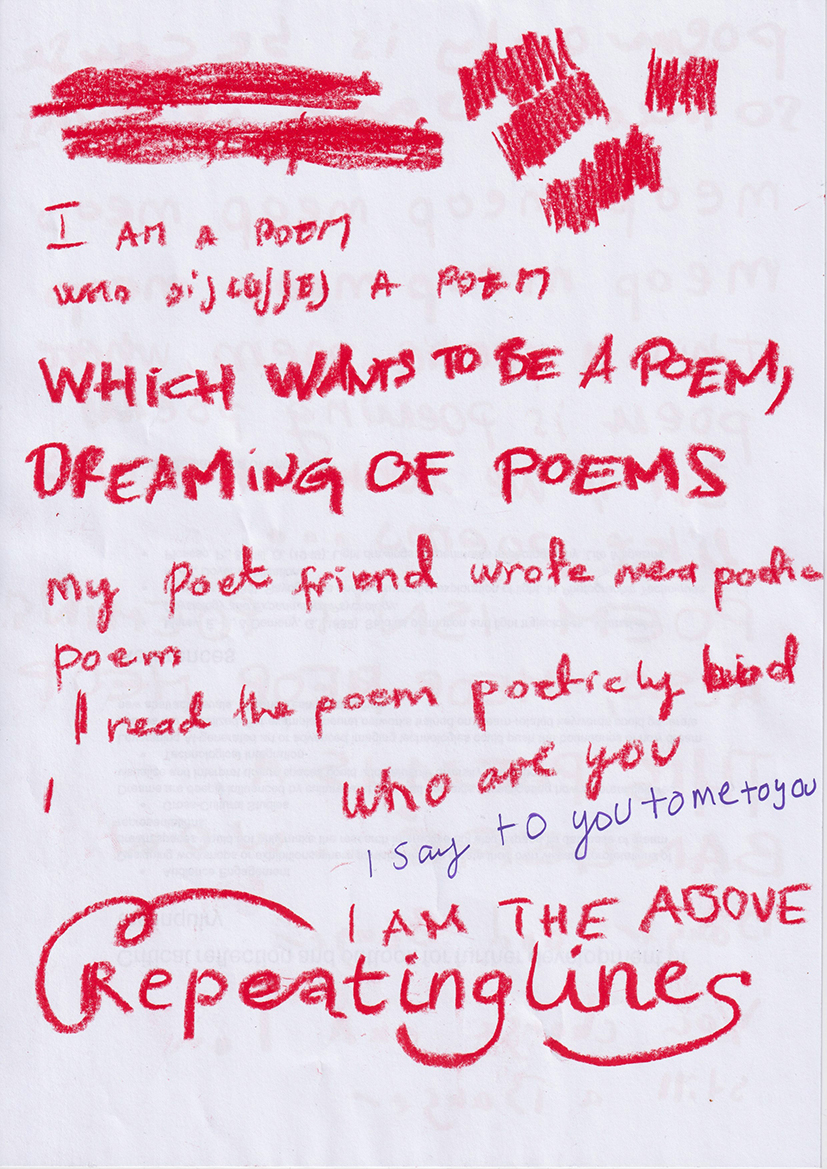 I AM A POEM
who discusses A POEM
WHICH WANTS TO BE A POEM,
DREAMING OF POEMS
my poet friend wrote me a poetic
poem
I read the poem poeticly
I who are you
I say to you to me to you
I AM THE ABOVE
Repeating lines